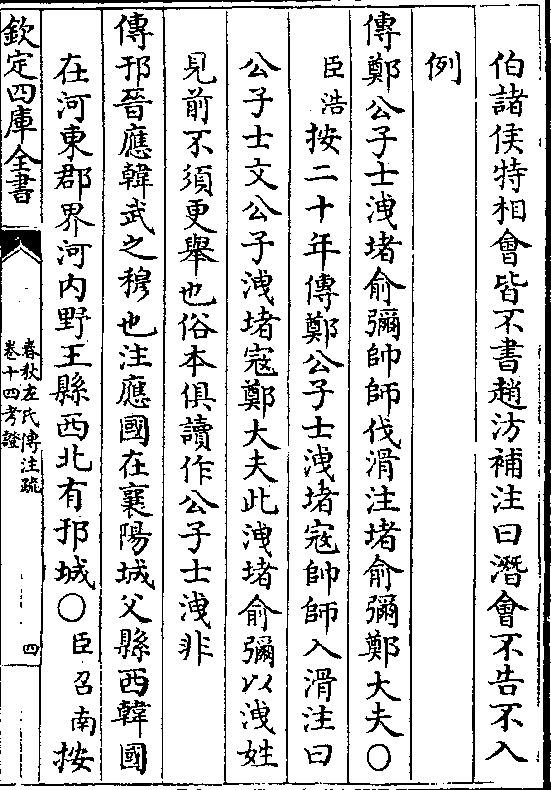 伯諸侯特相會皆不書趙汸補注曰潛會不告不入
例
傳鄭公子士洩堵俞彌帥師伐滑注堵俞彌鄭大夫○
臣浩按二十年傳鄭公子士洩堵寇帥師入滑注曰
公子士文公子洩堵寇鄭大夫此洩堵俞彌以洩姓
見前不須更舉也俗本俱讀作公子士洩非
傳邘晉應韓武之穆也注應國在襄陽城父縣西韓國
在河東郡界河内野王縣西北有邘城○臣召南按
欽定四庫全書
春秋左氏傳注疏
卷十四考證
四